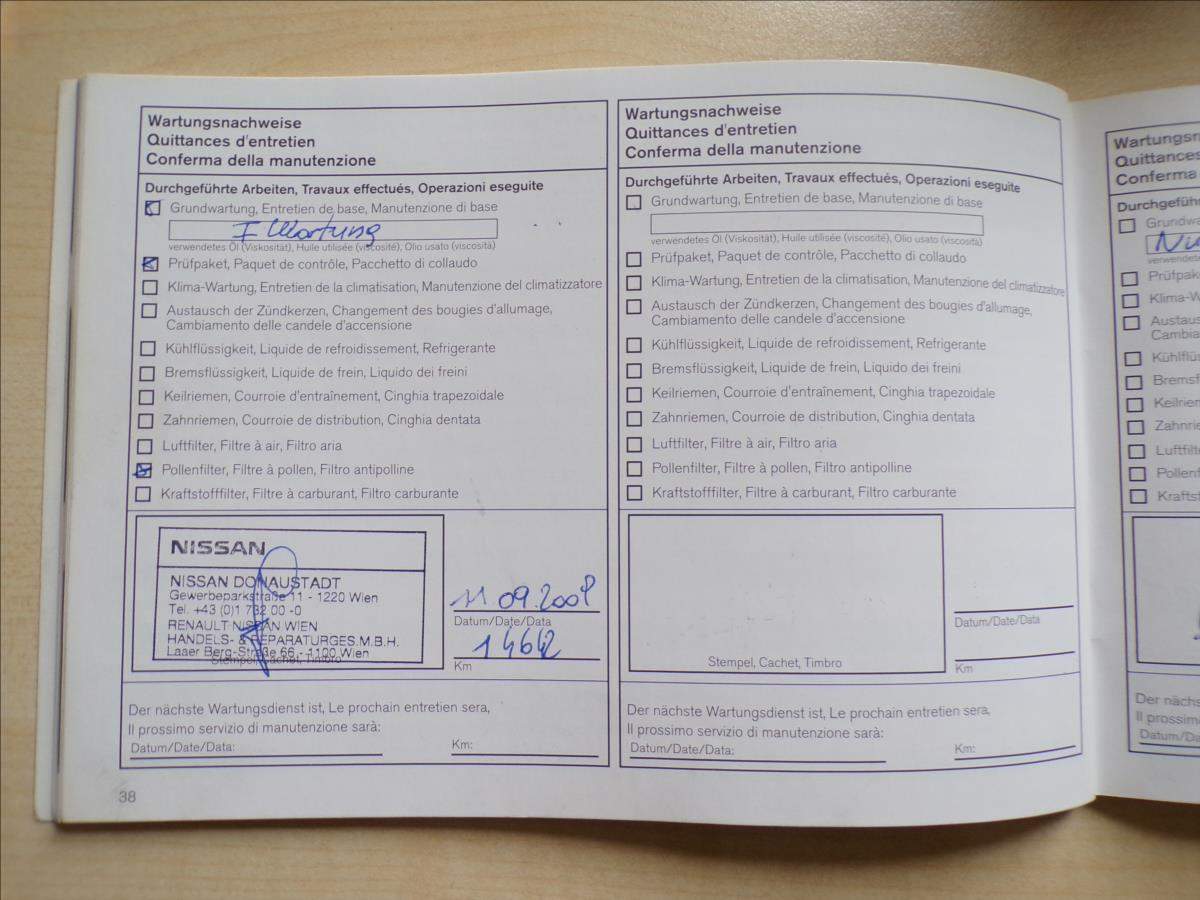 Wartungsnachweise
Quittances d'entretien
Conferma della manutenzione
Durchgeführte Arbeiten, Travaux effectués, Operazioni eseguite
Grundwartung, Entretien de base, Manutenzione di base
I Wartung
verwendetes Öl (Viskosität), Huile utilisée (viscosité), Olio usato (viscosità)
Prüfpaket, Paquet de contrôle, Pacchetto di collaudo
Klima-Wartung, Entretien de la climatisation, Manutenzione del climatizzatore
Austausch der Zündkerzen, Changement des bougies d'allumage,
Cambiamento delle candele d'accensione
Kühlflüssigkeit, Liquide de refroidissement, Refrigerante
Bremsflüssigkeit, Liquide de frein, Liquido dei freini
Keilriemen, Courroie d'entraînement, Cinghia trapezoidale
Zahnriemen, Courroie de distribution, Cinghia dentata
Luftfilter, Filtre à air, Filtro aria
Pollenfilter, Filtre à pollen, Filtro antipolline
Kraftstofffilter, Filtre à carburant, Filtro carburante
NISSAN
NISSAN DONAUSTADT
Gewerbeparkstraße 11 - 1220 Wien
Tel. +43 (0)1 732 00 -0
RENAULT NISSAN WIEN
HANDELS- & REPARATURGES.M.B.H.
Laaer Berg-Straße 66 - 1100 Wien
Stempel, Cachet, Timbro
11 09.2008
Datum/Date/Data
14642
Km
Der nächste Wartungsdienst ist, Le prochain entretien sera,
Il prossimo servizio di manutenzione sarà:
Datum/Date/Data:
Km:
38
Wartungsnachweise
Quittances d'entretien
Conferma della manutenzione
Durchgeführte Arbeiten, Travaux effectués, Operazioni eseguite
Grundwartung, Entretien de base, Manutenzione di base
verwendetes Öl (Viskosität), Huile utilisée (viscosité), Olio usato (viscosità)
Prüfpaket, Paquet de contrôle, Pacchetto di collaudo
Klima-Wartung, Entretien de la climatisation, Manutenzione del climatizzatore
Austausch der Zündkerzen, Changement des bougies d'allumage,
Cambiamento delle candele d'accensione
Kühlflüssigkeit, Liquide de refroidissement, Refrigerante
Bremsflüssigkeit, Liquide de frein, Liquido dei freini
Keilriemen, Courroie d'entraînement, Cinghia trapezoidale
Zahnriemen, Courroie de distribution, Cinghia dentata
Luftfilter, Filtre à air, Filtro aria
Pollenfilter, Filtre à pollen, Filtro antipolline
Kraftstofffilter, Filtre à carburant, Filtro carburante
Stempel, Cachet, Timbro
Datum/Date/Data
Km
Der nächste Wartungsdienst ist, Le prochain entretien sera,
Il prossimo servizio di manutenzione sarà:
Datum/Date/Data:
Km:
Wartungsn
Quittances
Conferma
Durchgefüh
Grundwa
verwendete
Prüfpak
Klima-W
Austaus
Cambia
Kühlflüs
Bremsf
Keilrien
Zahnrie
Luftfilt
Pollenf
Krafts
Der nächs
Il prossim
Datum/Da